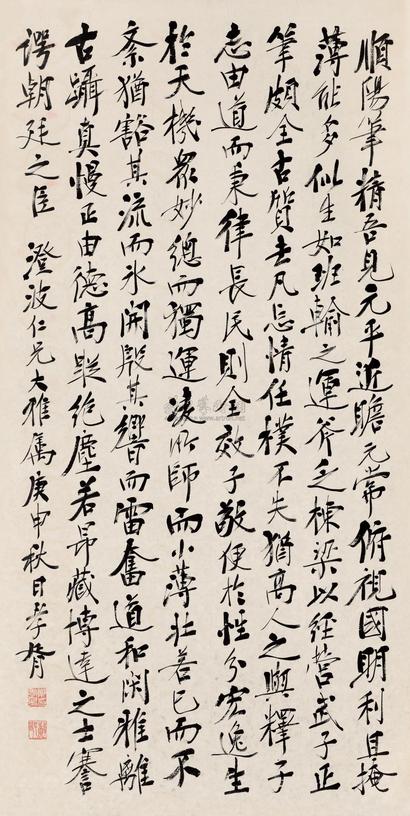 順陽筆精吾見元平近瞻元常俯視國明利且掩
薄能多似生如班輸之運斧乏棟梁以經營武子正
筆頗全古質去凡忘情任樸不失猶高人之與釋子
志由道而棄律長民則全效子敬便於性分宏逸生
於天機眾妙總而獨運淩所師而小薄壯善已而不
紊猶豁其流而冰開殷其響而雷奮道和閑雅離
古躡真慢正由德高蹤絕塵若昂藏博達之士謇
諤朝廷之臣 澄波仁兄大雅屬庚申秋日孝胥